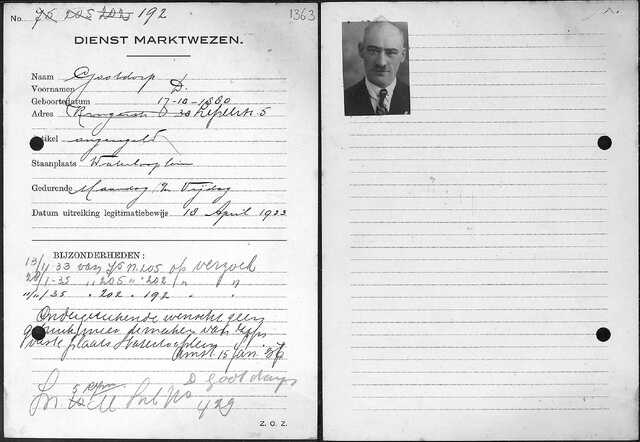 No. 75 105 202 192
1363
DIENST MARKTWEZEN.
Naam Gootdorp
Voornamen D.
Geboortedatum 17-10-1880
Adres 30 Lepelstr. 5
Artikel ongeregeld
Staanplaats Waterlooplein
Gedurende Maandag t/m Vrijdag
Datum uitreiking legitimatiebewijs 13 April 1933
BIJZONDERHEDEN:
13/4 33 van 75 n. 105 op verzoek
1-35 " 205 " 202 " "
35 " 202 " 192 " "
Ondergeteekende wenscht geen
gebruik meer te maken van zijn
vaste plaats Waterlooplein
Amst 15 Jan.
D Gootdorp
429
Z. O. Z.